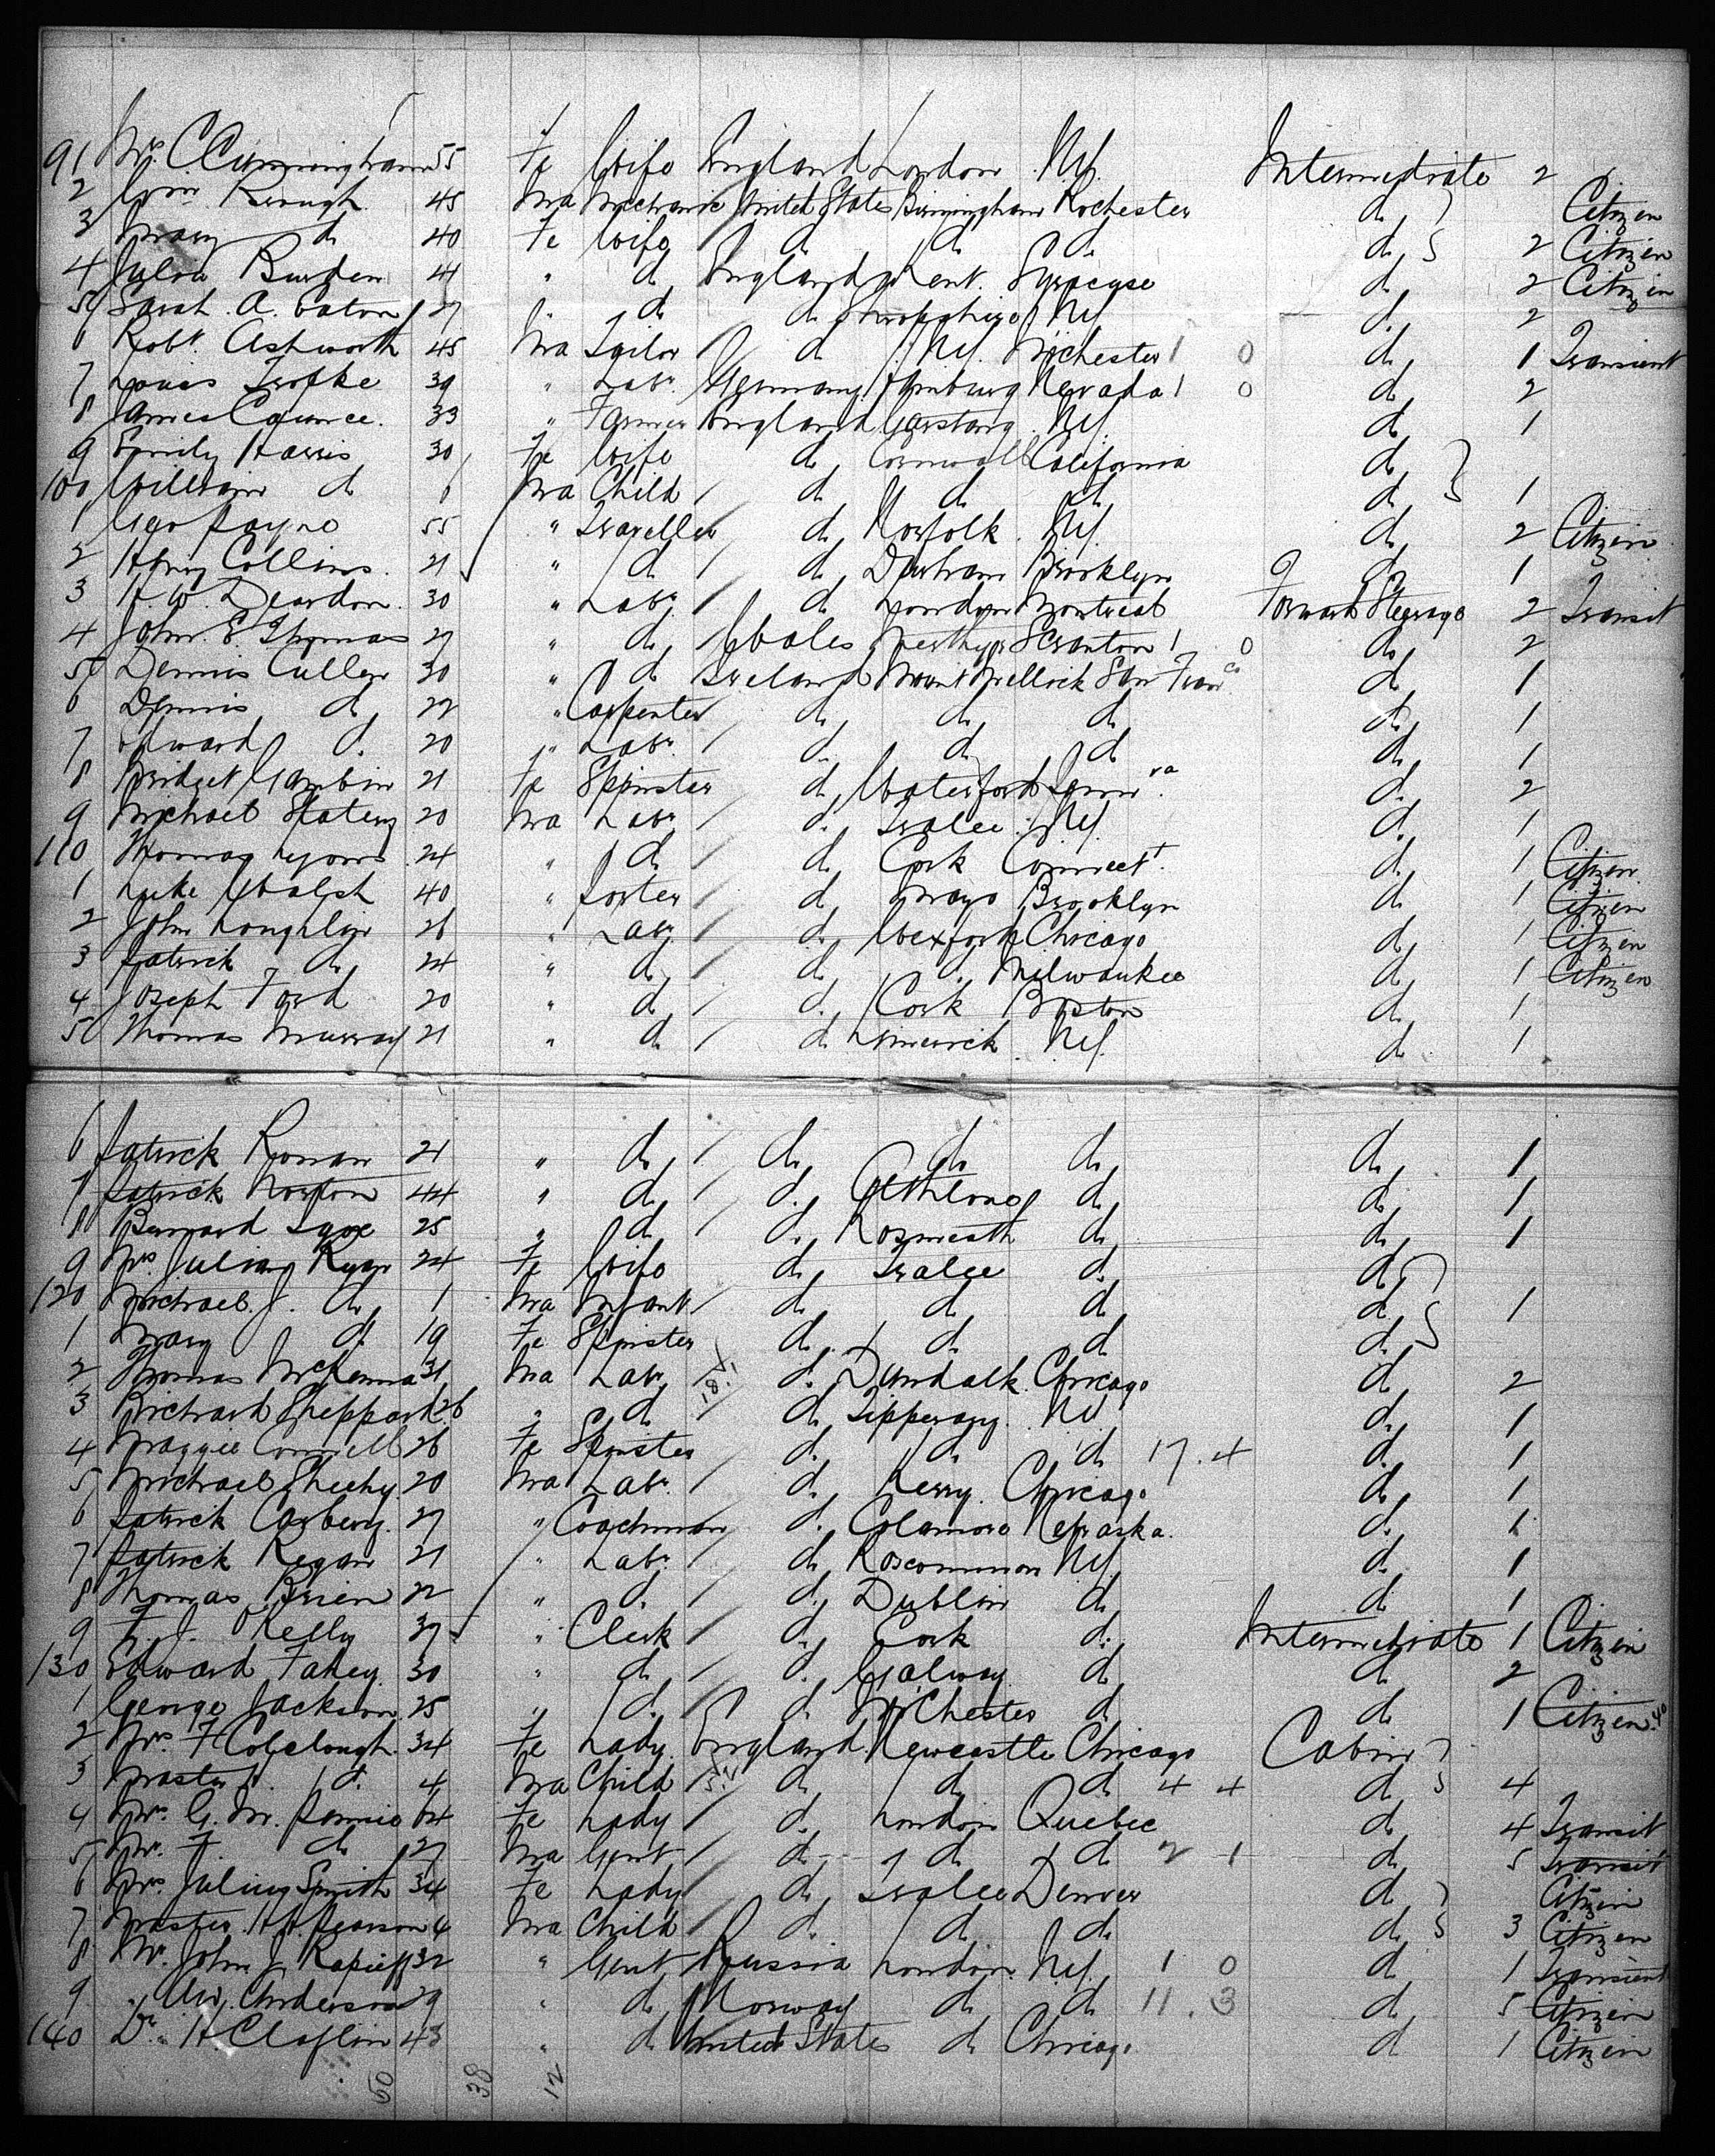 91 Mrs. C Cunningham 55 Fe Wife England London N.Y. Intermediate 2
2 Wm. Keough 45 Ma Mechanic United States Birmingham Rochester do Citizen
3 Mary do 40 Fe Wife do do do do 2 Citizen
4 Julia Burden 41 " do England Kent Syracuse do 2 Citizen
5 Sarah A. Eaton 27 " do do Shropshire N.Y. do 2
6 Robt. Ashworth 45 Ma Tailor do Rochester 1 0 do 1 Transient
7 Louis 39 " Labr. Germany Hamburg Nevada 1 0 do 2
8 James 33 " Farmer England Garstang N.Y. do 1
9 Emily Harris 30 Fe Wife do Cornwall California do
100 William do 6 Ma Child do do do do 1
1 Geo Payne 55 " Traveller do Norfolk N.Y. do 2 Citizen
2 Henry Collins 21 " do do Durham Brooklyn do 1
3 H. W. Deardon 30 " Labr. do London Montreal Forward Steerage 2 Transit
4 John E. Thomas 27 " do Wales Merthyr Scranton 1 0 do 2
5 Dennis Cullen 30 " do Ireland Mount Mellick San Franco do 1
6 Dennis do 22 " Carpenter do do do do 1
7 Edward do 20 " Labr. do do do do 1
8 Bridget 21 Fe Spinster do Waterford do 2
9 Michael Slatery 20 Ma Labr. do Tralee N.Y. do 1
110 Thomas Lyons 24 " do do Cork Connect. do 1 Citizen
1 Luke Walsh 40 " Porter do Mayo Brooklyn do 1 Citizen
2 John Loughlin 26 " Labr. do Wexford Chicago do 1 Citizen
3 Patrick do 24 " do do do Milwaukee do 1 Citizen
4 Joseph Ford 20 " do do Cork Boston do 1
5 Thomas Murray 21 " do do Limerick N.Y. do 1
6 Patrick Ronan 21 " do do do do do 1
7 Patrick Norton 44 " do do Athlone do do 1
8 Bernard 25 " do do do do 1
9 Mrs. Julia Ryan 24 Fe Wife do Tralee do do
120 Michael J. do 1 Ma Infant do do do do 1
1 Mary do 19 Fe Spinster do do do do
2 Thomas McKenna 31 Ma Labr. do Dundalk Chicago do 2
3 Richard Sheppard 26 " do do Tipperary N.Y. do 1
4 Maggie Connell 26 Fe Spinster do do do 17. 4 do 1
5 Michael Sheehy 20 Ma Labr. do Kerry Chicago do 1
6 Patrick Carbery 27 " Coachman do Nebraska do 1
7 Patrick Regan 21 " Labr. do Roscommon N.Y. do 1
8 Thomas Brien 22 " do do Dublin do do 1
9 F. J. Kelly 37 " Clerk do Cork do Intermediate 1 Citizen
130 Edward Fahey 30 " do do Galway do do 2
1 George Jackson 25 " do do do do 1 Citizen
2 Mrs. F Colclough 34 Fe Lady England Newcastle Chicago Cabin
3 Master do 4 Ma Child do do do 4 4 do 4
4 Mrs. G. M. 64 Fe Lady do London Quebec do 4 Transit
5 Mr. F. do 27 Ma Gent do do do 2 1 do 5 Transit
6 Mrs. Smith 34 Fe Lady do Tralee Denver do Citizen
7 Master H. Pearson 4 Ma Child do do do do 3 Citizen
8 Mr. John J. 32 " Gent Russia London N.Y. 1 0 do 1 Transient
9 " Anderson 29 " do Norway do do 11. 3 do 5 Citizen
140 Dr. H Claflin 43 " do United States do Chicago do 1 Citizen
60 38 12